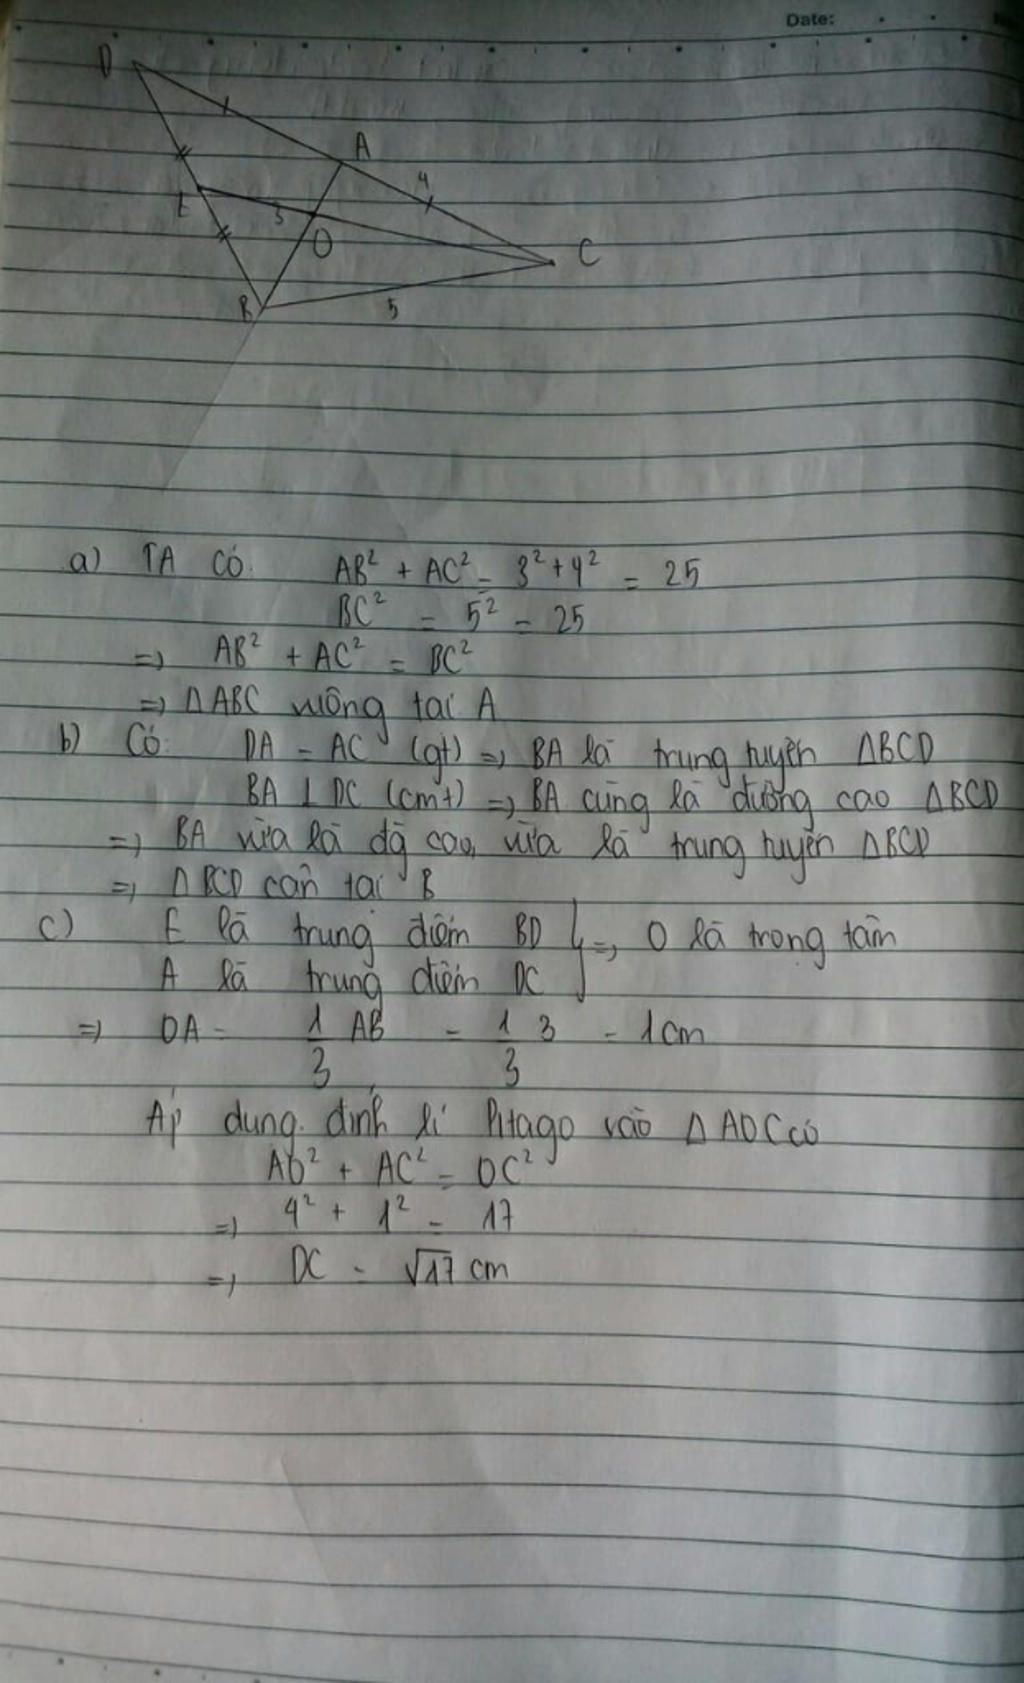 Date:
D
A
4
E
3
O
C
B
5
a) TA Có: AB² + AC² = 3² + 4² = 25
BC² = 5² = 25
=> AB² + AC² = BC²
=> ΔABC vuông tại A
b) Có: DA = AC (gt) => BA là trung tuyến ΔBCD
BA ⊥ DC (cmt) => BA cũng là đường cao ΔBCD
=> BA vừa là đg cao, vừa là trung tuyến ΔBCD
=> ΔBCD cân tại B
c) E là trung điểm BD } => O là trọng tâm
A là trung điểm DC
=> OA = 1/3 AB = 1/3 3 = 1cm
Áp dụng định lí Pitago vào ΔAOC có
AO² + AC² = OC²
=> 4² + 1² = 17
=> OC = √17 cm